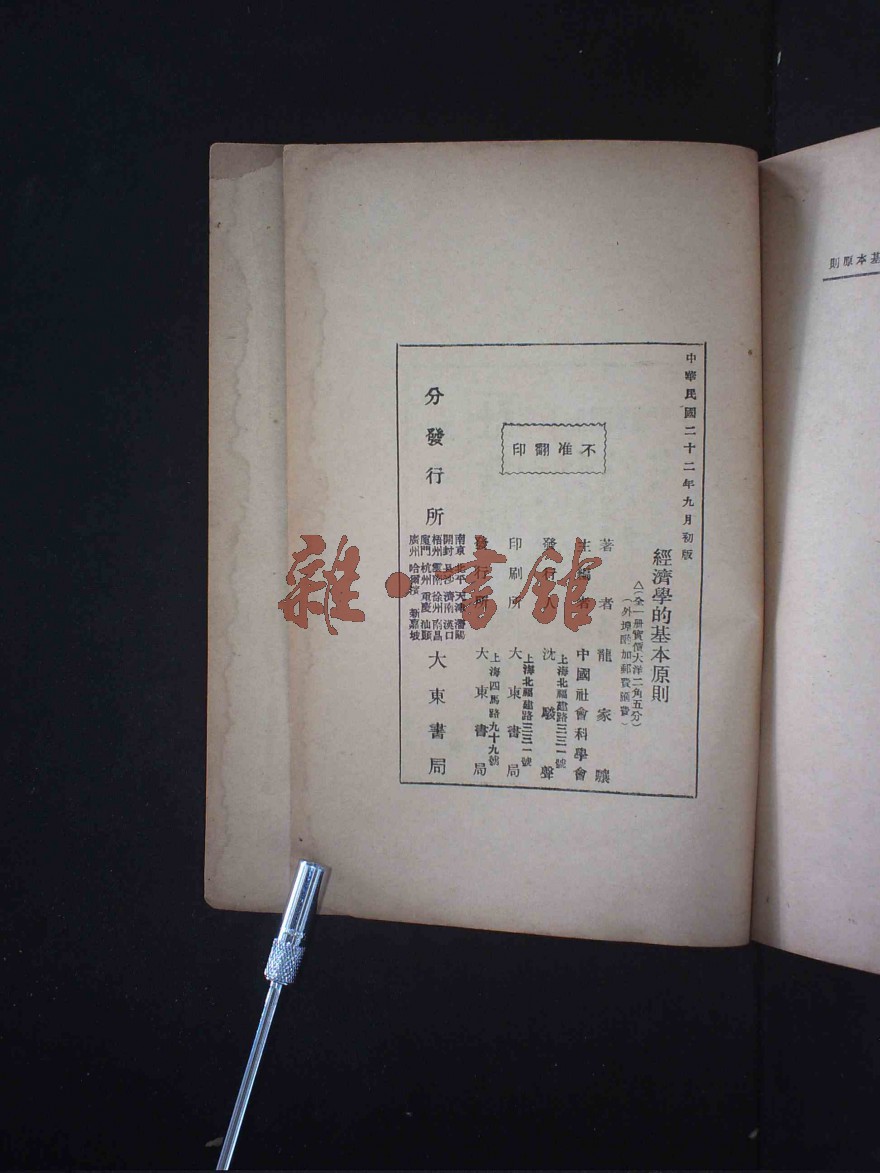 基本原則
中華民國二十二年九月初版
經濟學的基本原則
△(全一冊實價大洋二角五分)
(外埠酌加郵費匯費)
著者 龍家驤
主編者 中國社會科學會
上海北福建路三三一號
發行人 沈駿聲
上海北福建路三三一號
印刷所 大東書局
上海四馬路九十九號
發行所 大東書局
不准翻印
分發行所 大東書局
南京 北平 天津 瀋陽
開封 長沙 濟南 漢口
梧州 雲南 徐州 南昌
廈門 杭州 重慶 汕頭
廣州 哈爾濱 新嘉坡
雜·書館